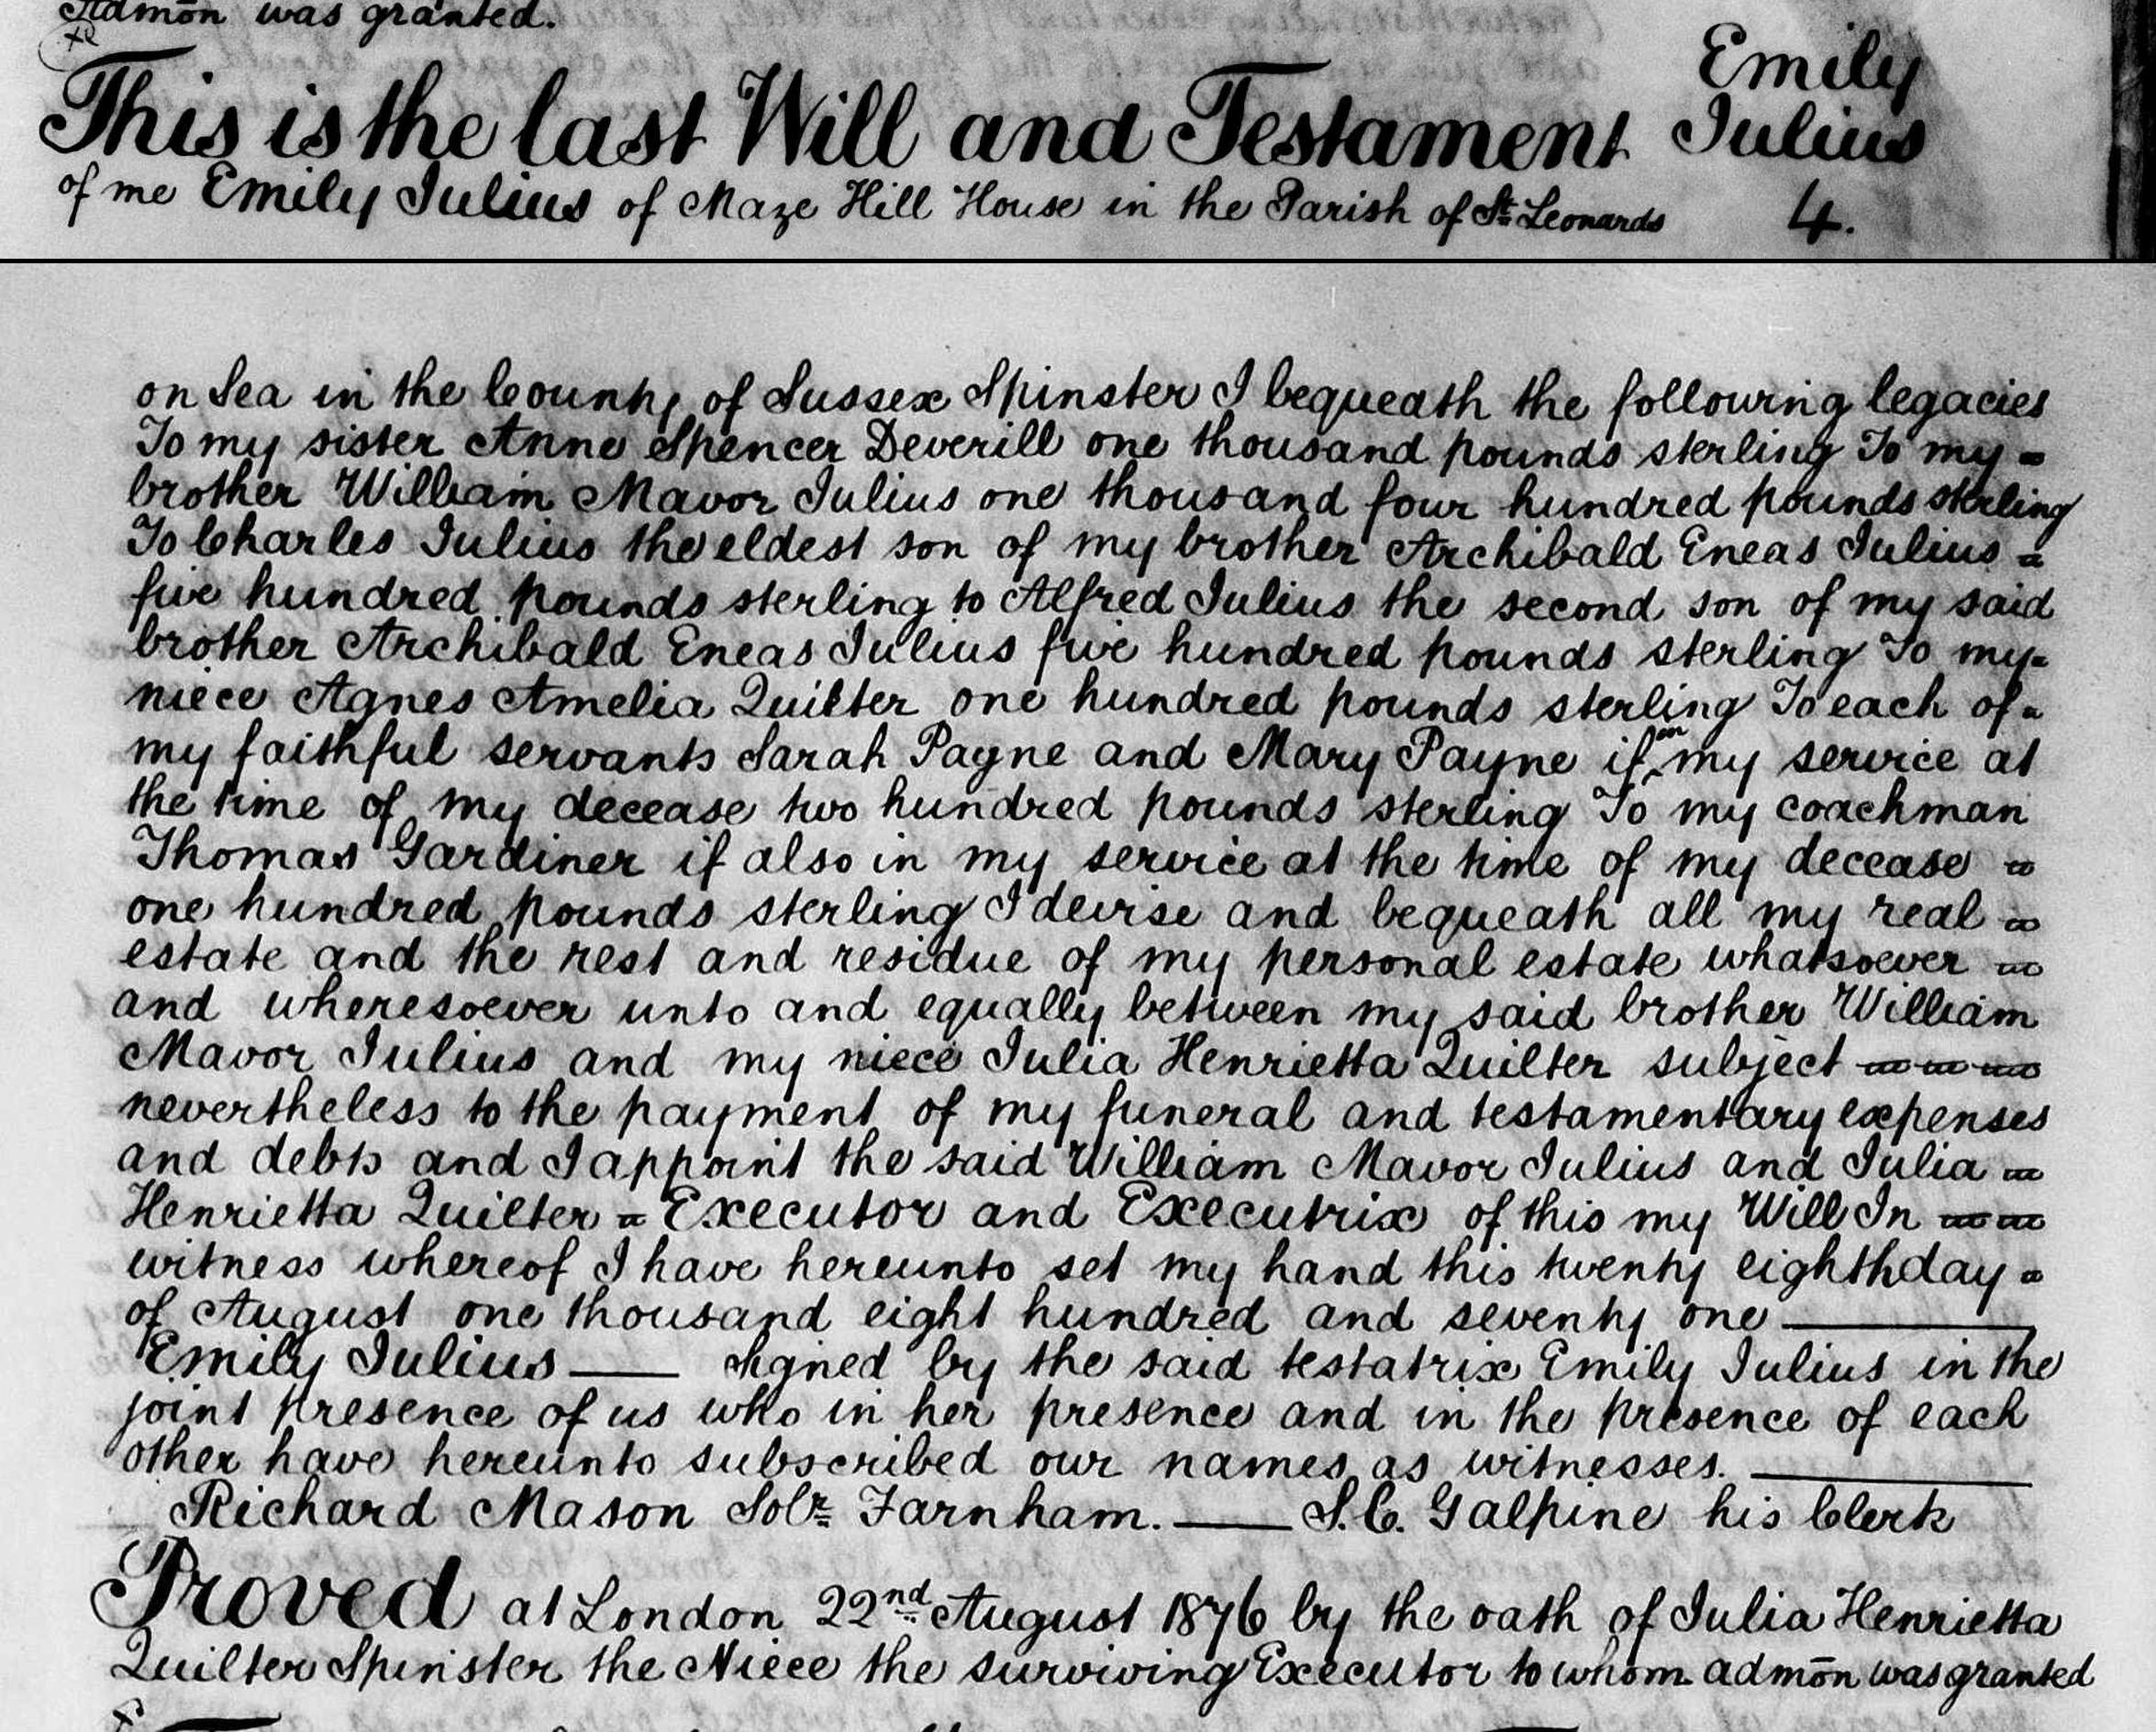 Admōn was granted.
Emily
Julius
4.
This is the last Will and Testament
of me Emily Julius of Maze Hill House in the Parish of St. Leonards
on Sea in the County of Sussex Spinster I bequeath the following legacies
To my sister Anne Spencer Deverill one thousand pounds sterling To my
brother William Mavor Julius one thousand four hundred pounds sterling
To Charles Julius the eldest son of my brother Archibald Eneas Julius
five hundred pounds sterling to Alfred Julius the second son of my said
brother Archibald Eneas Julius five hundred pounds sterling To my
niece Agnes Amelia Quilter one hundred pounds sterling To each of
my faithful servants Sarah Payne and Mary Payne if in my service at
the time of my decease two hundred pounds sterling To my coachman
Thomas Gardiner if also in my service at the time of my decease
one hundred pounds sterling I devise and bequeath all my real
estate and the rest and residue of my personal estate whatsoever
and wheresoever unto and equally between my said brother William
Mavor Julius and my niece Julia Henrietta Quilter subject
nevertheless to the payment of my funeral and testamentary expenses
and debts and I appoint the said William Mavor Julius and Julia
Henrietta Quilter Executor and Executrix of this my Will In
witness whereof I have hereunto set my hand this twenty eighth day
of August one thousand eight hundred and seventy one
Emily Julius — Signed by the said testatrix Emily Julius in the
joint presence of us who in her presence and in the presence of each
other have hereunto subscribed our names as witnesses.
Richard Mason Solr. Farnham. — S. C. Galpine his Clerk
Proved at London 22nd August 1876 by the oath of Julia Henrietta
Quilter Spinster the Niece the surviving Executor to whom admōn was granted